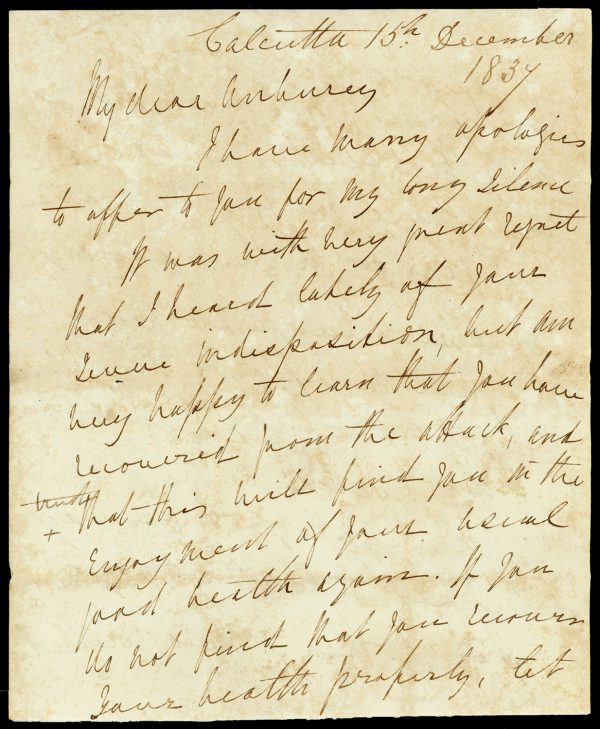 Calcutta 15th December
1837
My dear Anburey
I have many apologies
to offer to you for my long Silence
It was with very great regret
that I heard lately of your
Severe indisposition, but am
very happy to learn that you have
recovered from the attack, and
trust
+ that this will find you in the
Enjoyment of your usual
good health again. If you
do not find that you recover
your health properly, let